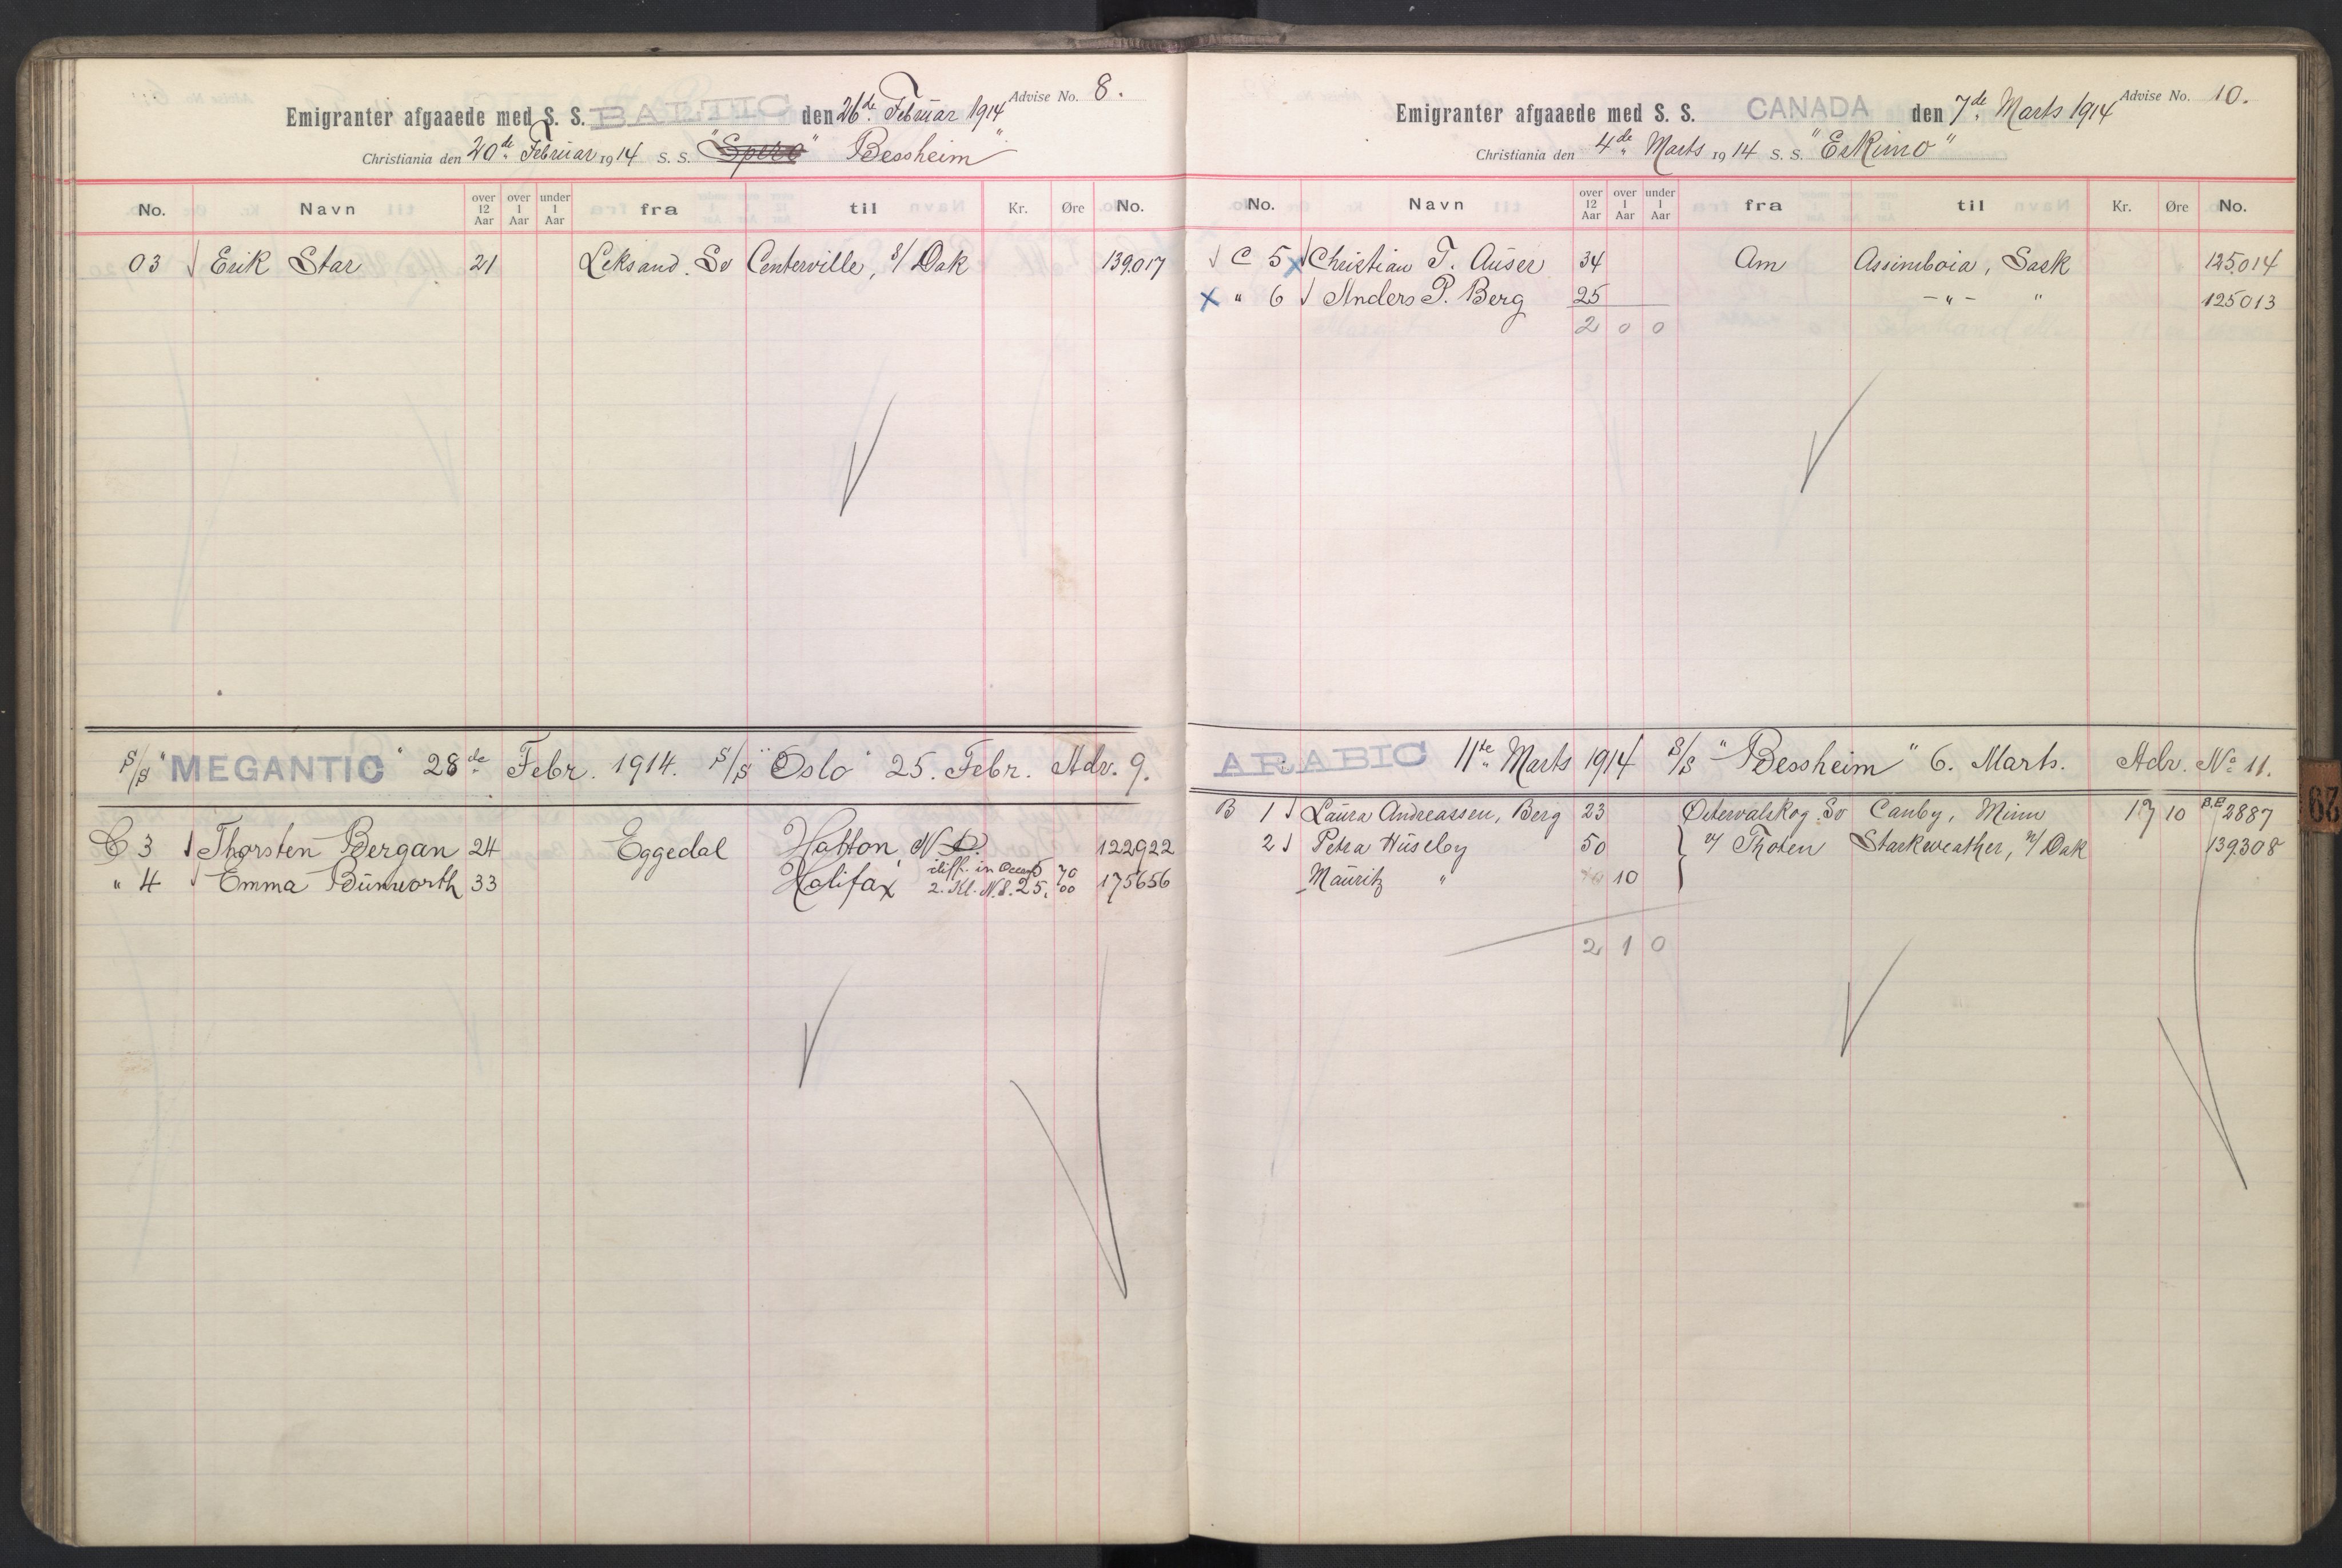 Advise No. 8.
Emigranter afgaaede med S. S. BALTIC den 26de Februar 1914
Christiania den 20de Februar 1914 S. S. "Spero" Bessheim"
No. Navn over 12 Aar over 1 Aar under 1 Aar fra til Kr. Øre No.
03 Erik Star 21 Leksand. Sv Centerville, S/Dak 139.017
S/S "MEGANTIC" 28de Febr. 1914. S/S "Oslo" 25. Febr. Adv. 9.
C 3 Thorsten Bergan 24 Eggedal Hatton, N.D. 122922
" 4 Emma Dunworth 33 Halifax diff. in 2. Kl. N.S. 25. 70 00 175656
Advise No. 10.
Emigranter afgaaede med S. S. CANADA den 7de Marts 1914
Christiania den 4de Marts 1914 S. S. "Eskimo"
No. Navn over 12 Aar over 1 Aar under 1 Aar fra til Kr. Øre No.
C 5 x Christian T. Auser 34 Am Assiniboia, Sask 125.014
x " 6 Anders P. Berg 25 -"- " 125013
2 0 0
ARABIC 11te Marts 1914 S/S "Bessheim" 6. Marts. Adv. No 11.
B 1 Laura Andreassen, Berg 23 Østervalskog. Sv Canby, Minn 17 10 2887
2 Petra Huseby 50 V/ Thoten Starkweather, N/Dak 139308
Mauritz " 10
2 1 0
29